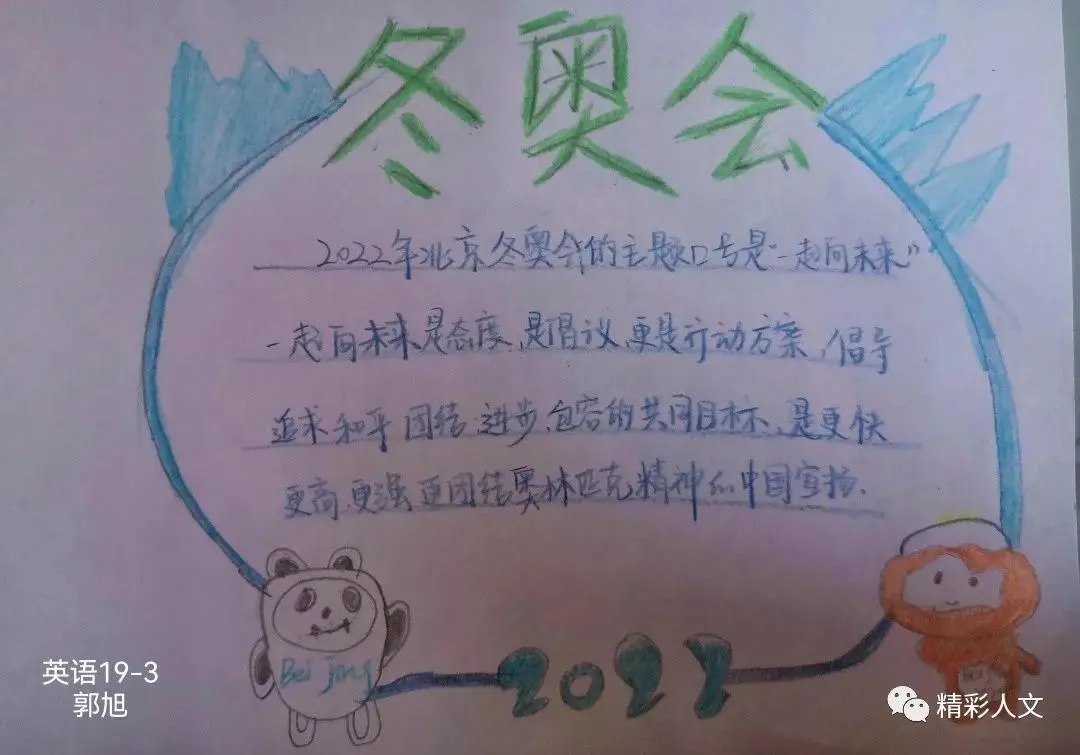 冬奥会
2022年北京冬奥会的主题口号是“一起向未来”
一起向未来是态度、是倡议、更是行动方案、倡导
追求和平 团结 进步、包容的共同目标、是更快
更高、更强 更团结奥林匹克精神的中国宣扬、
Bei jing
2022
英语19-3
郭旭
精彩人文